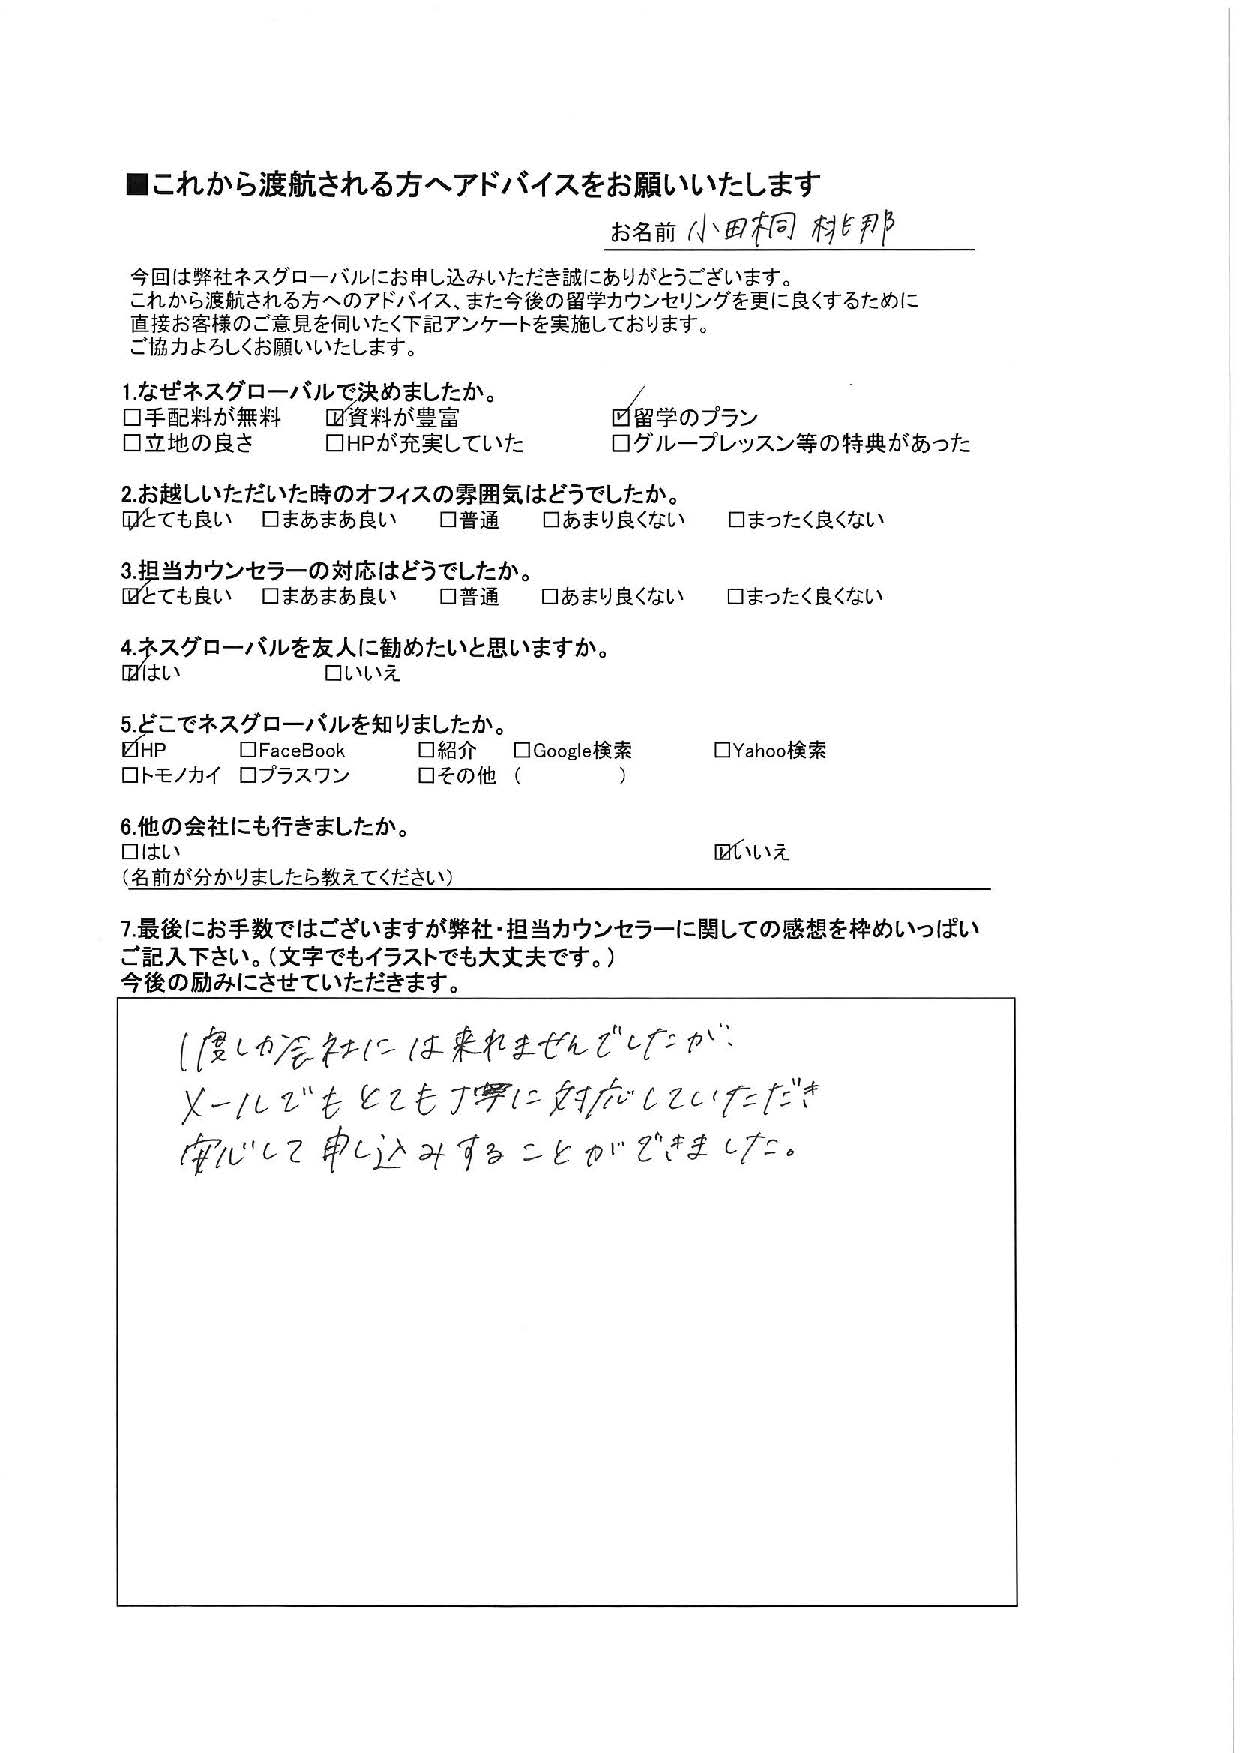 ■これから渡航される方へアドバイスをお願いいたします
お名前 小田桐 桃那
今回は弊社ネスグローバルにお申し込みいただき誠にありがとうございます。
これから渡航される方へのアドバイス、また今後の留学カウンセリングを更に良くするために
直接お客様のご意見を伺いたく下記アンケートを実施しております。
ご協力よろしくお願いいたします。
1.なぜネスグローバルで決めましたか。
□手配料が無料 ☑資料が豊富 ☑留学のプラン
□立地の良さ □HPが充実していた □グループレッスン等の特典があった
2.お越しいただいた時のオフィスの雰囲気はどうでしたか。
☑とても良い □まあまあ良い □普通 □あまり良くない □まったく良くない
3.担当カウンセラーの対応はどうでしたか。
☑とても良い □まあまあ良い □普通 □あまり良くない □まったく良くない
4.ネスグローバルを友人に勧めたいと思いますか。
☑はい □いいえ
5.どこでネスグローバルを知りましたか。
☑HP □FaceBook □紹介 □Google検索 □Yahoo検索
□トモノカイ □プラスワン □その他 ( )
6.他の会社にも行きましたか。
□はい ☑いいえ
(名前が分かりましたら教えてください)
7.最後にお手数ではございますが弊社・担当カウンセラーに関しての感想を枠めいっぱい
ご記入下さい。(文字でもイラストでも大丈夫です。)
今後の励みにさせていただきます。
1度しか会社には来れませんでしたが、
メールでもとても丁寧に対応していただき
安心して申し込みすることができました。